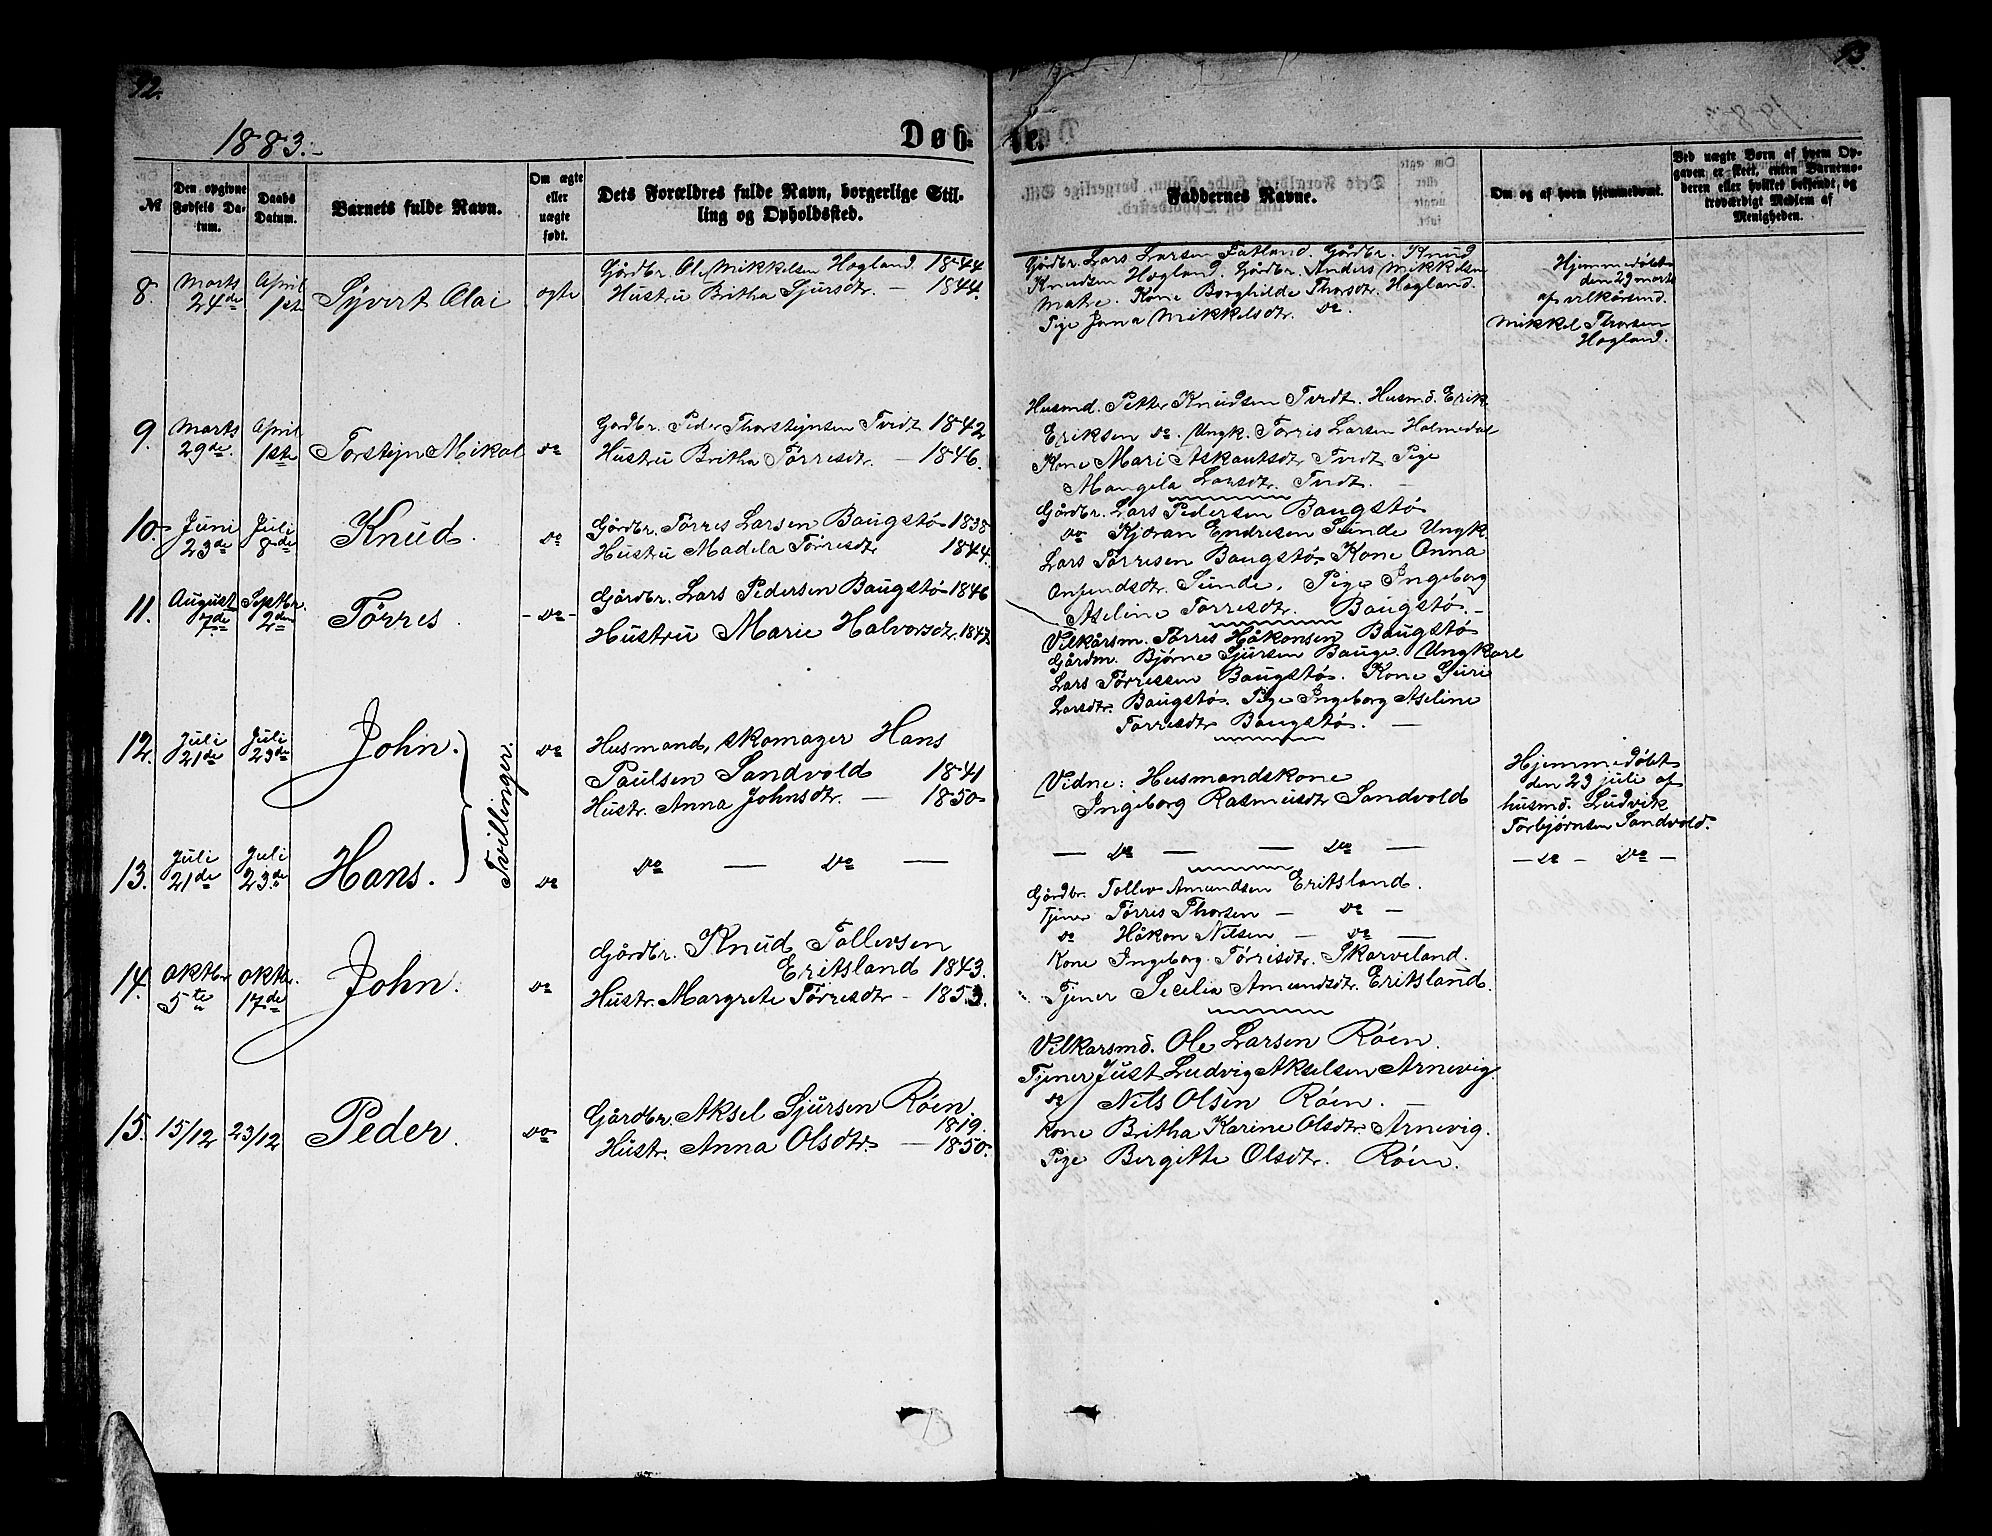 92.
93.
1883.-
Døb-
te.
№
Den opgivne Fødsels Datum.
Daabs Datum.
Barnets fulde Navn.
Om ægte eller uægte født.
Dets Forældres fulde Navn, borgerlige Stilling og Opholdssted.
Faddernes Navne.
Om og af hvem hjemmedøbt.
Ved uægte Børn af hvem Opgaven er skeet, enten Barnemoderen eller hvilket bekjendt, og troværdigt Medlem af Menigheden.
8. Marts 24de April 1ste Syvert Olai ægte
Gårdbr. Ole Mikkelsen Hogland 1844
Hustru Britha Sjursdtr. — 1844.
Gårdbr. Lars Larsen Fatland. Gårdbr. Knud
Knudsen Hogland. Gårdbr. Anders Mikkelsen
Matre. Kone Borghilde Thorsdtr. Hogland.
Pige Jorna Mikkelsdtr. do.
Hjemmedøbt
den 29 marts
af vilkårsmd.
Mikkel Thorsen
Hogland.
9. Marts 29de April 1ste Torstejn Mikal do
Gårdbr. Peder Thorstejnsen Tvedt 1842
Hustru Britha Tørresdtr. — 1846.
Husmd. Petter Knudsen Tvedt. Husmd. Erik
Eriksen do. Ungk. Torris Larsen Holmedal
Kone Mari Askautsdtr Tvedt Pige
Mangela Larsdtr. Tvedt. —
10. Juni 23de Juli 8de Knud. do
Gårdbr. Tørres Larsen Baugstø 1838
Hustru Madela Tørresdtr 1844.
Gårdbr. Lars Pedersen Baugstø
do Kjøran Endresen Sunde Ungk.
Lars Tørresen Baugstø. Kone Anna
Onfendsdtr. Sunde. Pige Ingeborg
Aseline Tørresdtr. Baugstø. -
11. August 7de Septbr. 2den Tørres - do -
Gårdbr. Lars Pedersen Baugstø 1846
Hustru Marie Halvorsdtr. 1847.
Vilkårsm. Tørres Håkonsen Baugstø
Gårdm. Bjørne Sjursen Bauge. Ungkarl
Lars Tørressen Baugstø. Kone Guri
Larsdtr. Baugstø. Pige Ingeborg Aseline
Tørresdtr Baugstø. —
12. Juli 21de Juli 23de John. do
Tvillinger.
Husmand, skomager Hans
Paulsen Sandvold 1841
Hustr. Anna Johnsdtr. — 1850
Vidne: Husmandskone
Ingeborg Rasmusdtr Sandvold
Hjemmedøbt
den 23 juli af
husmd. Ludvik
Torbjørnsen Sandvold.
13. Juli 21de Juli 23de Hans. do
do — do —
— do — — do —
— do — do —
14. Oktbr 5te Oktbr. 17de John. do
Gårdbr. Knud Tollevsen
Eritsland 1843.
Hustr. Margrete Tørresdtr - 1853.
Gårdbr. Tollev Amundsen Eritsland.
Tjener Tørris Thorsen — do —
do Håkon Nilsen — do —
Kone Ingeborg Tørrisdtr. Skarveland.
Tjener Secelia Amundsdtr. Eritsland.
15. 15/12 23/12 Peder. do
Gårdbr. Aksel Sjursen Røen.
1819.
Hustr. Anna Olsdtr. — 1850.
Vilkarsmd. Ole Larsen Røen.
Tjener Just Ludvig Akselsen Arnevig.
do Nils Olsen Røen. —
Kone Britha Karine Olsdtr. Arnevig.
Pige Bergitte Olsdtr. Røen.